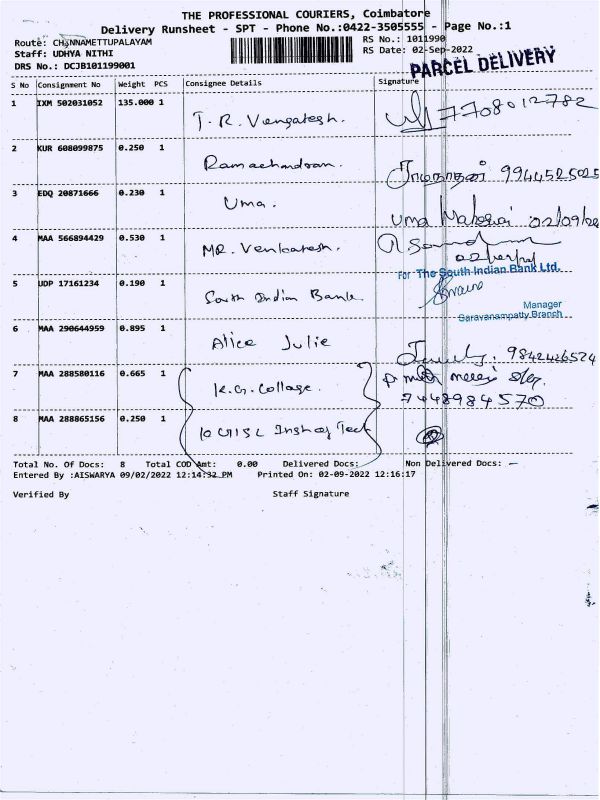 THE PROFESSIONAL COURIERS, Coimbatore
Delivery Runsheet - SPT - Phone No.:0422-3505555 - Page No.:1
Route: CHINNAMETTUPALAYAM
RS No.: 1011990
Staff: UDHYA NITHI
RS Date: 02-Sep-2022
DRS No.: DCJB101199001
PARCEL DELIVERY
S No Consignment No Weight PCS Consignee Details Signature
1 IXM 502031052 135.000 1 T. R. Vengatesh. 7708012782
2 KUR 608099875 0.250 1 Ramachandran. 9944525025
3 EDQ 20871666 0.230 1 Uma. Uma
4 MAA 566894429 0.530 1 MR. Venkatesh.
For The South Indian Bank Ltd.
5 UDP 17161234 0.190 1 South Indian Bank
Manager
Saravanampatty Branch
6 MAA 290644959 0.895 1 Alice Julie 9842426524
7 MAA 288580116 0.665 1 K.G. Collage.
7448984570
8 MAA 288865156 0.250 1
Total No. Of Docs: 8 Total COD Amt: 0.00 Delivered Docs: Non Delivered Docs: -
Entered By :AISWARYA 09/02/2022 12:14:32 PM Printed On: 02-09-2022 12:16:17
Verified By Staff Signature